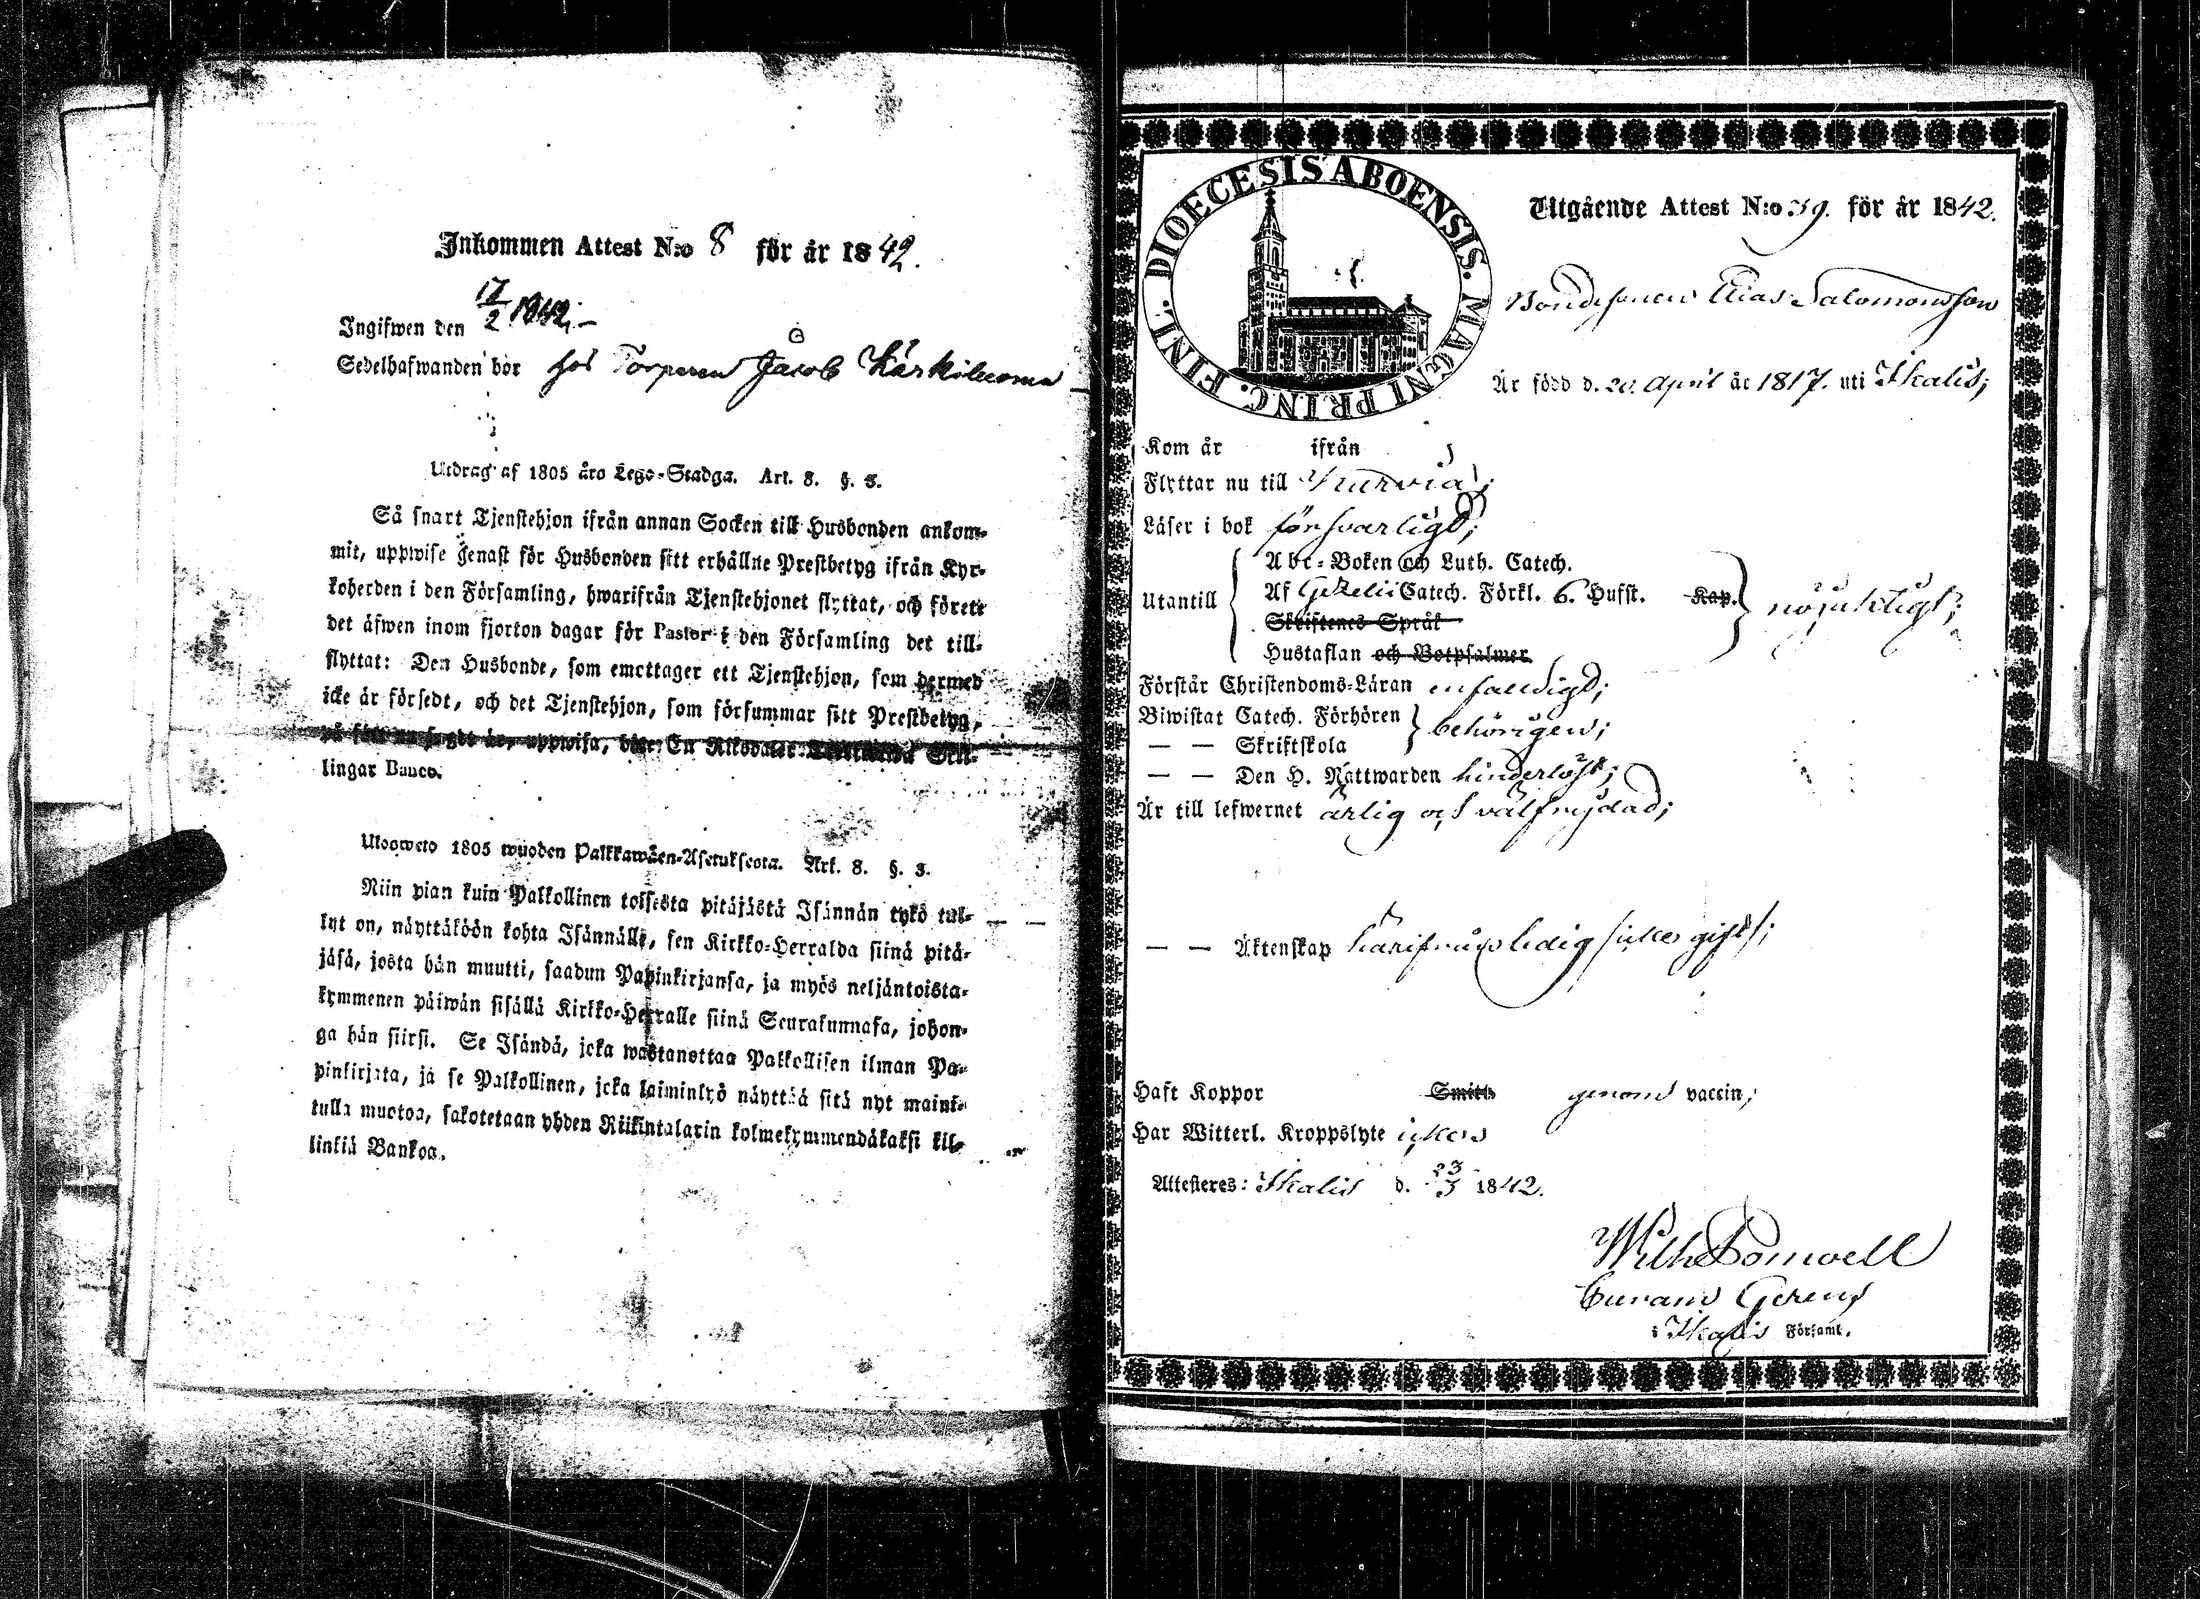 Inkommen Attest N:o 8 för år 1842.
Ingifwen den 17/2 1842;-
Sedelhafwanden bor hos Torparen Jacob Kärkiluoma
Utdrag af 1805 års Lego-Stadga. Art. 8. §. 3.
Så snart Tjenstehjon ifrån annan Socken till Husbonden ankom-
mit, uppwise genast för Husbonden sitt erhållne Prestbetyg ifrån Kyr-
koherden i den Församling, hwarifrån Tjenstehjonet flyttat, och förete
det äfwen inom fjorton dagar för Pastor i den Församling det till-
flyttat: Den Husbonde, som emottager ett Tjenstehjon, som dermed
icke är försedt, och det Tjenstehjon, som försummar sitt Prestbetyg,
på sätt nu sagdt är, uppwisa, böte En Riksdaler Skil-
lingar Banco.
Ulosweto 1805 wuoden Palkkawäen-Asetuksesta. Art. 8. §. 3.
Niin pian kuin Palkollinen toisesta pitäjästä Isännän tykö tul-
lyt on, näyttäköön kohta Isännälle, sen Kirkko-Herralda siinä pitä-
jäsä, josta hän muutti, saadun Papinkirjansa, ja myös neljäntoista-
kymmenen päiwän sisällä Kirkko-Herralle siinä Seurakunnasa, johon-
ga hän siirsi. Se Isändä, joka wastanottaa Palkollisen ilman Pa-
pinkirjata, ja se Palkollinen, joka laiminlyö näyttää sitä nyt maini-
tulla muotoa, sakotetaan yhden Riikintalarin kolmekymmendäkaksi kil-
linkiä Bankoa.
DIOECESIS ABOENSIS. MAGNI PRINC. FINL.
Utgående Attest N:o 39. för år 1842.
Bondesonen Elias Salomonsson
Är född d. 20. April år 1817. uti Ikalis;
Kom år ifrån
Flyttar nu till
Läser i bok försvarligt;
Utantill
Abc-Boken och Luth. Catech.
Af Gezelii Catech. Förkl. 6. Hufst. Kap.
Skriftenes Språk
Hustaflan och Botpsalmer
nöjaktigt;
Förstår Christendoms-Läran enfaldigt;
Biwistat Catech. Förhören
— — Skriftskola
behörigen;
— — Den H. Nattwarden hinderlöst;
Är till lefwernet ärlig och välfrejdad;
— — Äktenskap härifrån ledig icke gift;
Haft Koppor Smitt. genom vaccin;
Har Witterl. Kroppslyte icke
Attesteres: Ikalis d. 23/3 1842.
Wilh
Curam Gerens
i Ikalis Församl.